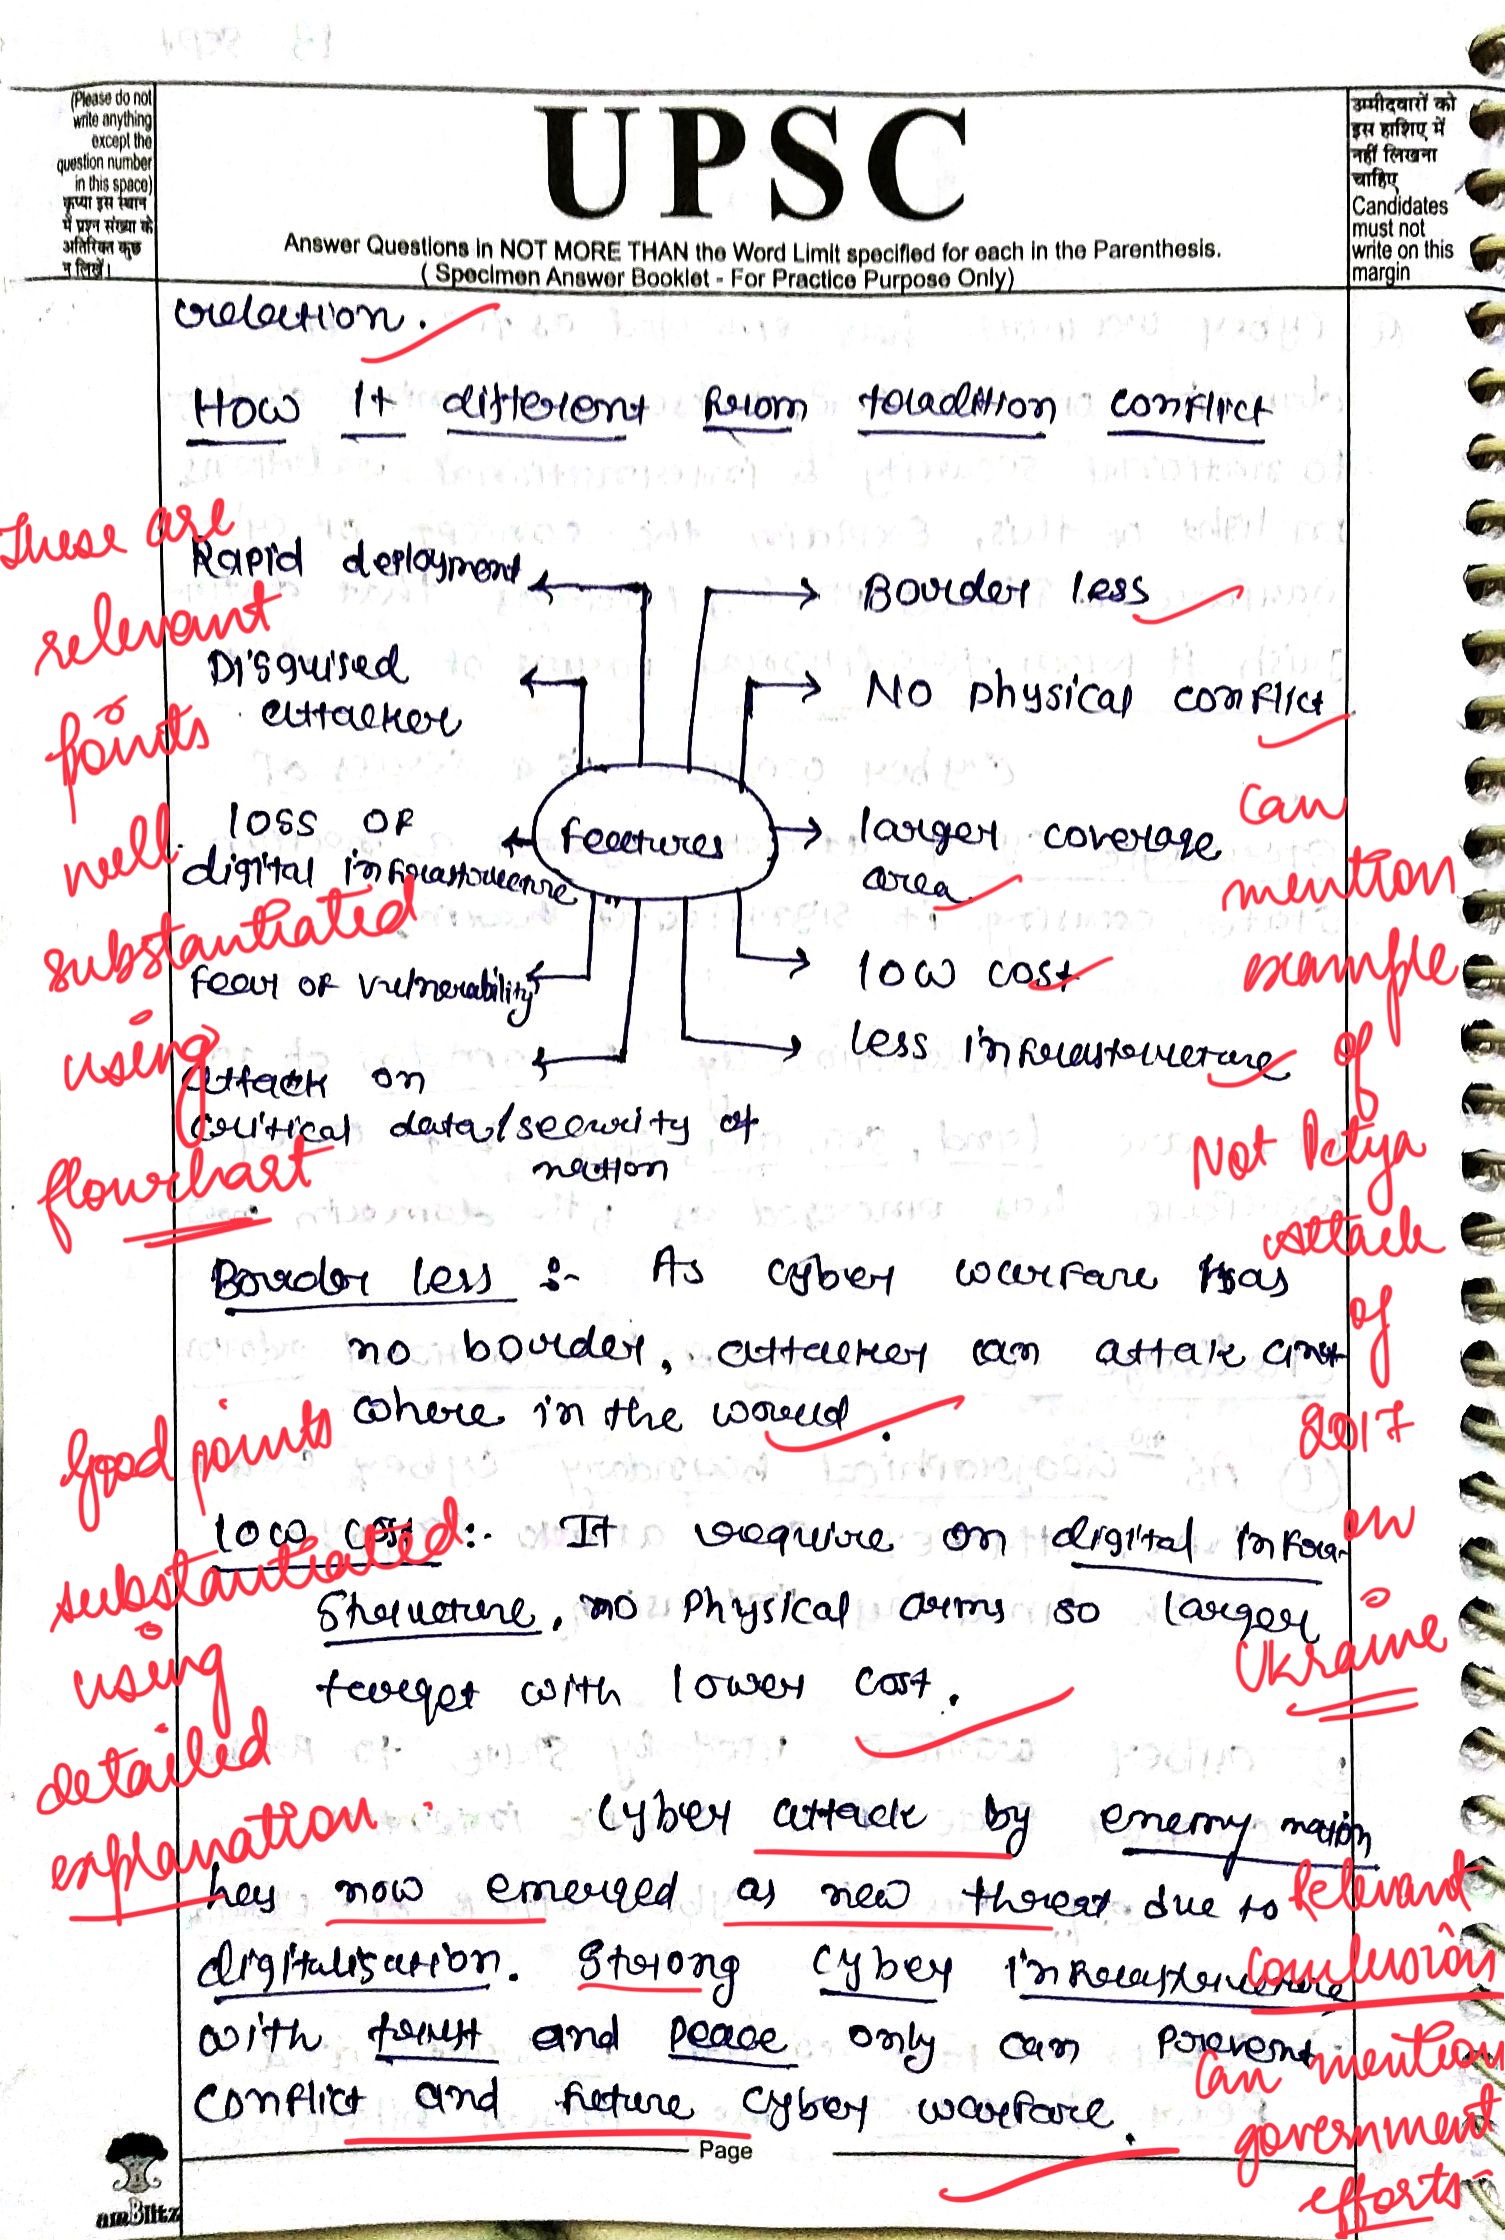 (Please do not
write anything
except the
question number
in this space)
कृप्या इस स्थान
में प्रश्न संख्या के
अतिरिक्त कुछ
न लिखें।
UPSC
Answer Questions in NOT MORE THAN the Word Limit specified for each in the Parenthesis.
( Specimen Answer Booklet - For Practice Purpose Only)
उम्मीदवारों को
इस हाशिए में
नहीं लिखना
चाहिए
Candidates
must not
write on this
margin
relation.
How It different from tradition conflict
Rapid deployment
Border less
Disguised
attacker
No physical conflict
loss of
digital infrastructure
features
larger coverage
area
fear of vulnerability
low cost
less infrastructure
attack on
critical data/security of
nation
These are
relevant
points
well
substantiated
using
flowchart
can
mention
example
of
Not Petya
attack
of
2017
on
Ukraine
Border less :- As cyber warfare has
no border, attacker can attak any
where in the world.
low cost :- It require on digital infra-
structure, no physical arms so larger
target with lower cost.
Good points
substantiated
using
detailed
explanation
cyber attack by enemy nation
has now emerged as new threat due to
digitalisation. Strong cyber infrastructure
with trust and peace only can prevent
conflict and future cyber warfare.
Relevant
conclusion
can mention
government
efforts
Page
amBlitz